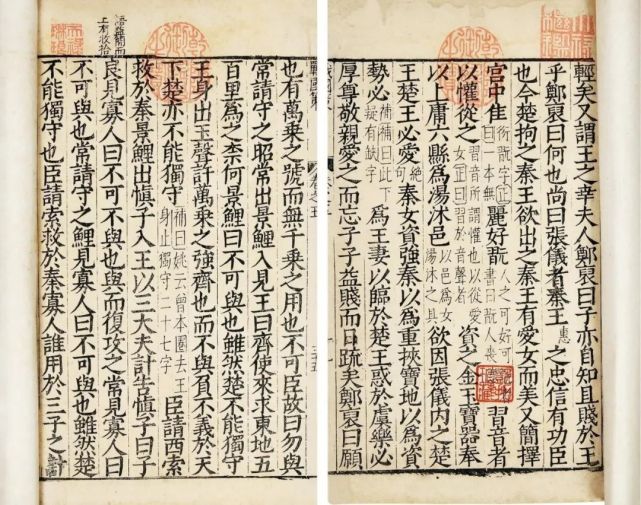 輕矣又謂王之幸夫人鄭褒曰子亦自知且賤於王
乎鄭褒曰何也尚曰張儀者秦王惠之忠信有功臣
也今楚拘之秦王欲出之秦王有愛女而美又簡擇
宮中隹衍翫字正曰一本無麗好翫人之可好可書曰翫人喪習音者
以懽從之習音所謂懽也以從愛女正曰習於音聲者資之金玉寶器奉
以上庸六縣爲湯沐邑以邑爲女湯沐之具欲因張儀內之楚
王楚王必愛絶句秦女資強秦以爲重挾寶地以爲資
勢必補曰此下疑有缺字爲王妻以臨於楚王惑於虞樂必
厚尊敬親愛之而忘子子益賤而日䟽矣鄭褒曰願
戰國策
卷之五
也有萬乗之號而無千乗之用也不可臣故曰勿與
常請守之昭常出景鯉入見王曰齊使來求東地五
百里爲之柰何景鯉曰不可與也雖然楚不能獨守
王身出玉聲許萬乗之強齊也而不與負不義於天
下楚亦不能獨守補曰姚云曾本圈去王身止獨守二十七字臣請西索
救於秦景鯉出愼子入王以三大夫計告愼子曰子
良見寡人曰不可不與也與而復攻之常見寡人曰
不可與也常請守之鯉見寡人曰不可與也雖然楚
不能獨守也臣請索救於秦寡人誰用於三子之計
上有收拾